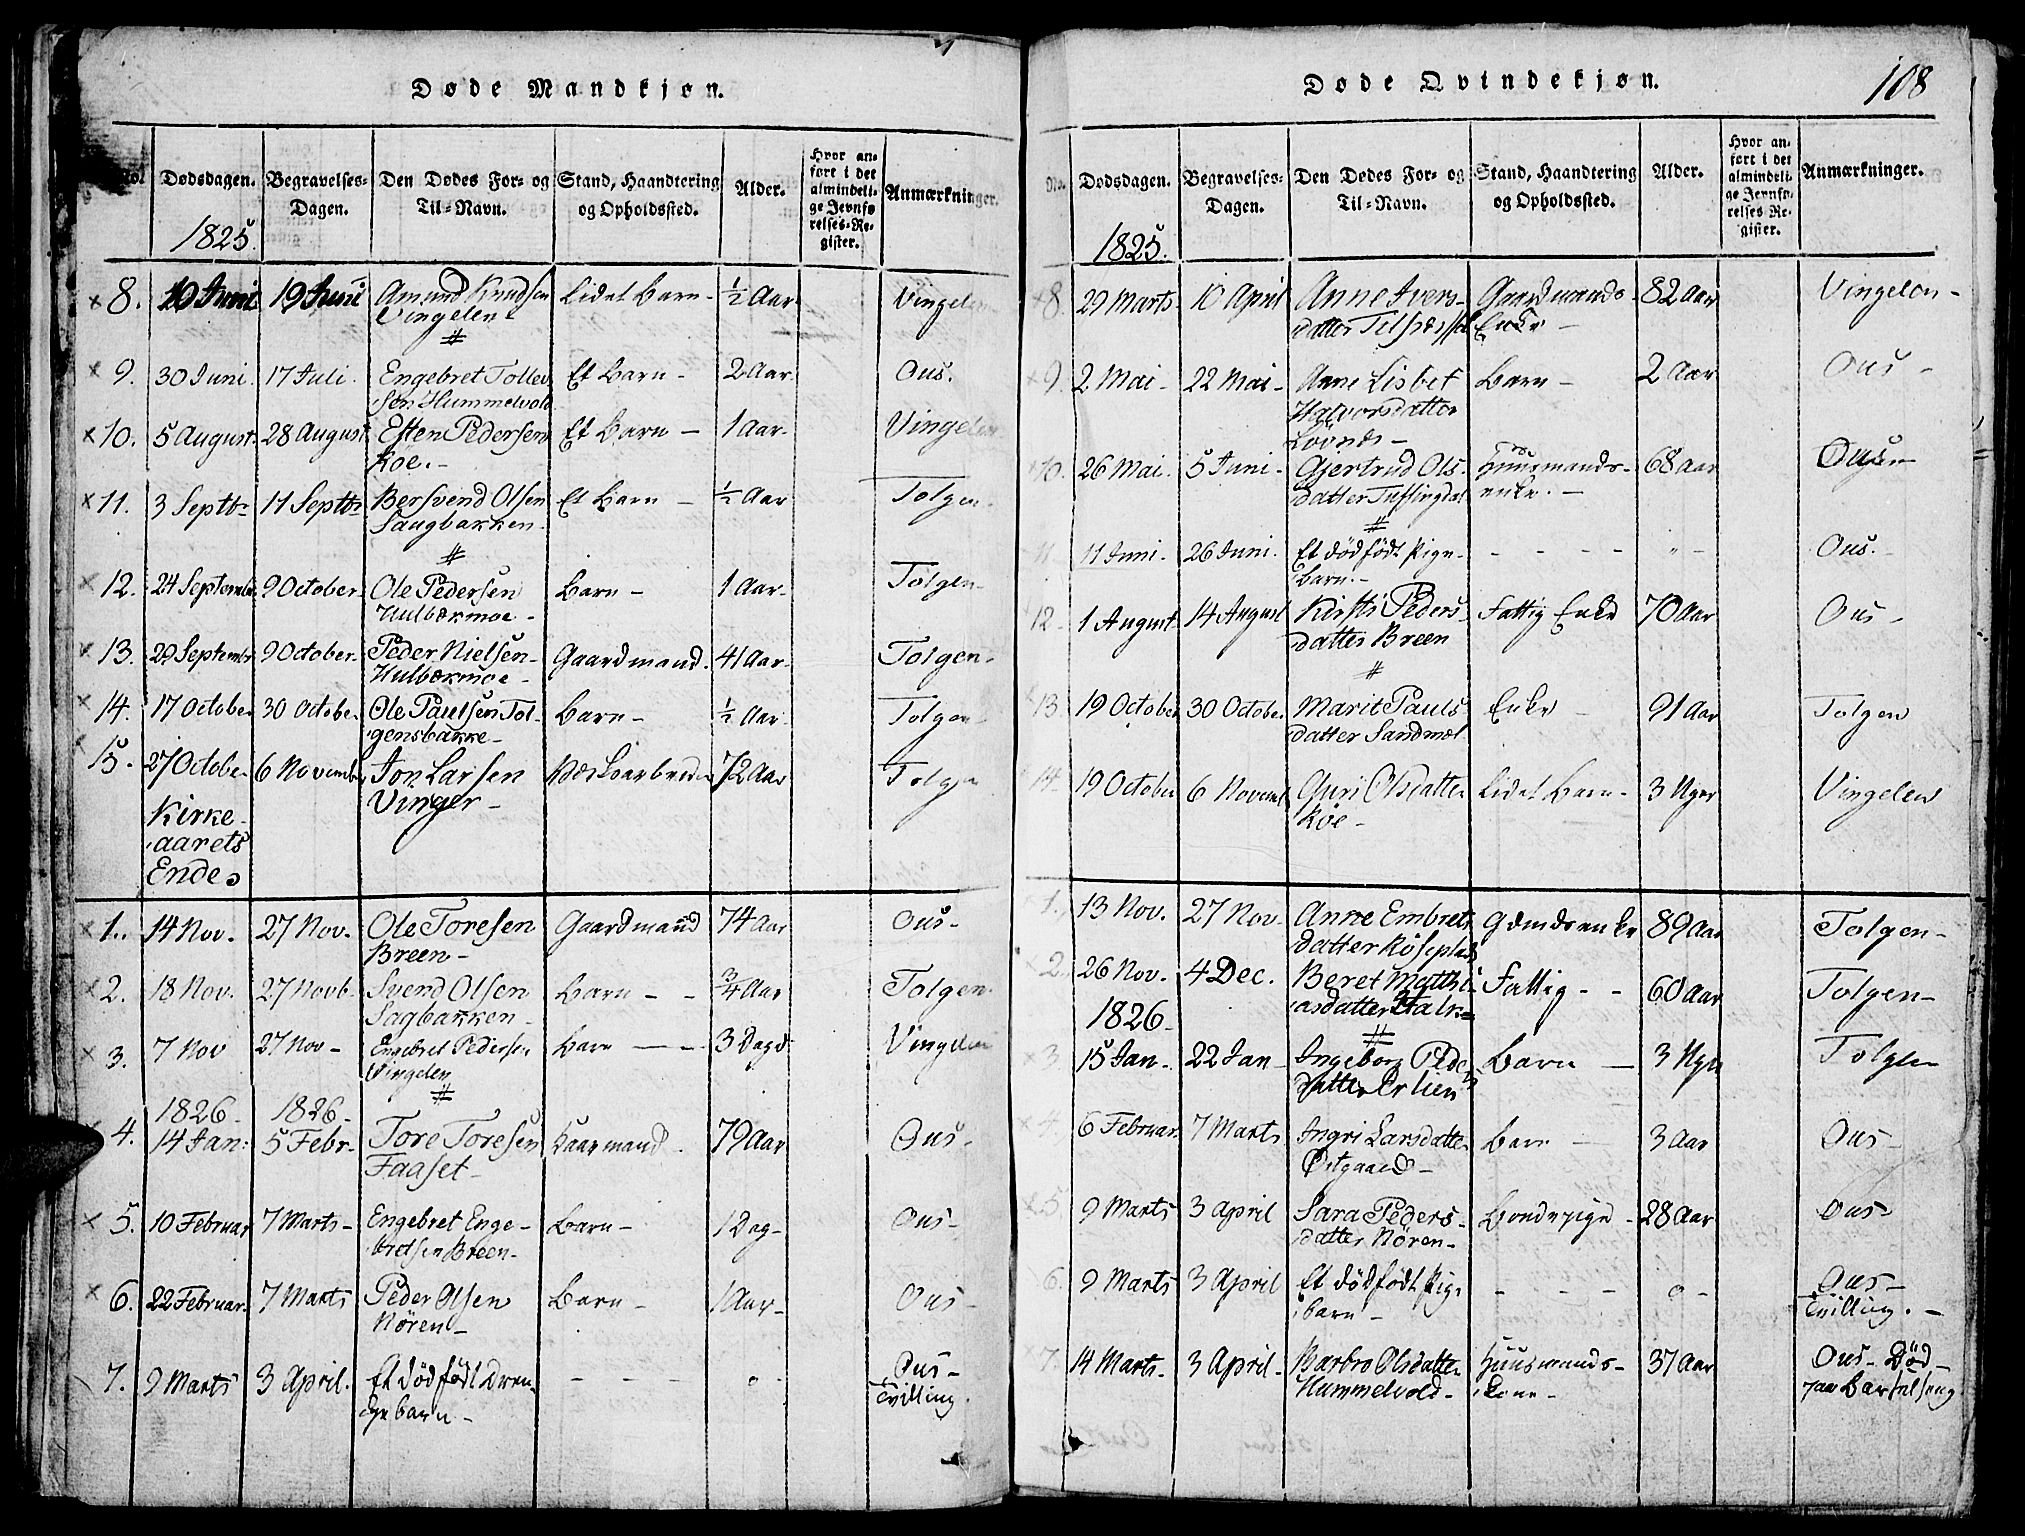 Døde Mandkjøn.
No. Dødsdagen. Begravelses-Dagen. Den Dødes For- og Til-Navn. Stand, Haandtering og Opholdssted. Alder. Hvor anført i det almindelige Jevnførelses-Register. Anmærkninger.
1825.
8. 10 Juni 19 Juni Amund Knudsen Lidet Barn - ½ Aar Vingelen
Vingelen
9. 30 Juni. 17 Juli. Engebret Tollev Et Barn - 2 Aar. Ous.
sen Hummelvold
10. 5 August. 28 August Esten Pedersen Et Barn - 1 Aar. Vingelen
Koe.-
11. 3 Septbr 11 Septbr Bersvend Olsen Et Barn - ½ Aar Tolgen.
Saugbakken.
12. 24 September 9 October. Ole Pedersen Barn - 1 Aar. Tolgen-
Hulbækmoe-
13. 29 Septembr 9 October. Peder Nielsen- Gaardmand. 41 Aar- Tolgen-
Hulbækmoe-
14. 17 October 30 October. Ole Paulsen Tol- Barn - ½ Aar. Tolgen-
gensbakke-
15. 27 October 6 November Jon Larsen 72 Aar Tolgen
Vinger-
Kirke-
aarets
Ende
1. 14 Nov. 27 Nov. Ole Toresen Gaardmand 74 Aar Ous-
Breen-
2. 18 Nov. 27 Novb. Svend Olsen Barn - - ¾ Aar Tolgen.
Sagbakken-
3. 7 Nov 27 Nov- Engebret Pedersen Barn - - 3 Dage Vingelen
Vingelen
1826- 1826-
4. 14 Jan: 5 Febr- Tore Toresen Kaarmand. 79 Aar Ous-
Faaset-
5. 10 Februar 7 Marts- Engebret Enge- Barn- 1 Dag- Ous-
bretsen Breen-
6. 22 Februar. 7 Marts Peder Olsen Barn- 1 Aar- Ous-
Nören-
7. 9 Marts 3 April. Et dödfödt Dren- - - - Ous-
gebarn- Tvilling.
Døde Qvindekjøn.
108
No. Dødsdagen. Begravelses-Dagen. Den Dødes For- og Til-Navn. Stand, Haandtering og Opholdssted. Alder. Hvor anført i det almindelige Jevnførelses-Register. Anmærkninger.
1825.
8. 29 Marts 10 April Anne Ivers- Gaardmands- 82 Aar Vingelen-
datter Enke-
9. 2 Mai- 22 Mai- Anne Lisbet Barn- 2 Aar Ous-
Halvorsdatter
10. 26 Mai. 5 Juni- Gjertrud Ols- Huusmands- 68 Aar Ous-
datter Tufsingdal enke.-
11 11 Juni- 26 Juni. Et dödfödt Pige- - - - - Ous.
barn.-
12 1 August 14 August Kirsti Peders- Fattig Enke 70 Aar Ous-
datter Breen
13 19 October 30 October Marit Pauls Enke - 91 Aar Tolgen
datter Sandmæl
14 19 October 6 Novemb Guri Olsdatter Lidet Barn- 3 Uger Vingelen
Koe-
1. 13 Nov. 27 Nov Anne Embrets Gdmdsenke 89 Aar Tolgen-
datter Röseplads
2. 26 Nov. 4 Dec. Beret Matthi Fattig - - 60 Aar Tolgen-
1826- asdatter
3 15 Jan- 22 Jan- Ingeborg Peders Barn - 3 Uger Tolgen
datter Erlien
4. 6 Februar. 7 Marts Ingri Larsdatter Barn - 3 Aar Ous-
Östgaard-
5. 9 Marts 3 April Sara Peders- Bondepige - 28 Aar Ous-
datter Nören-
6. 9 Marts 3 April Et dödfödt Pige - - - Ous-
barn - Tvilling.-
7. 14 Marts- 3 April- Barbro Olsdatter Huusmands- 37 Aar Ous- Död-
Hummelvold- kone-